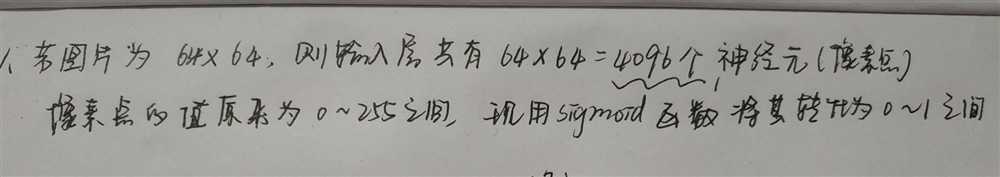 1、若图片为 64×64，则输入层共有 64×64=4096个神经元(像素点)
像素点的值原来为 0~255之间，现用sigmoid 函数将其转化为 0~1之间